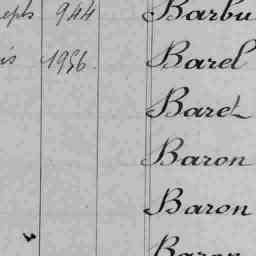 944 Barbu
1956. Barel
Baret
Baron
Baron
Baron